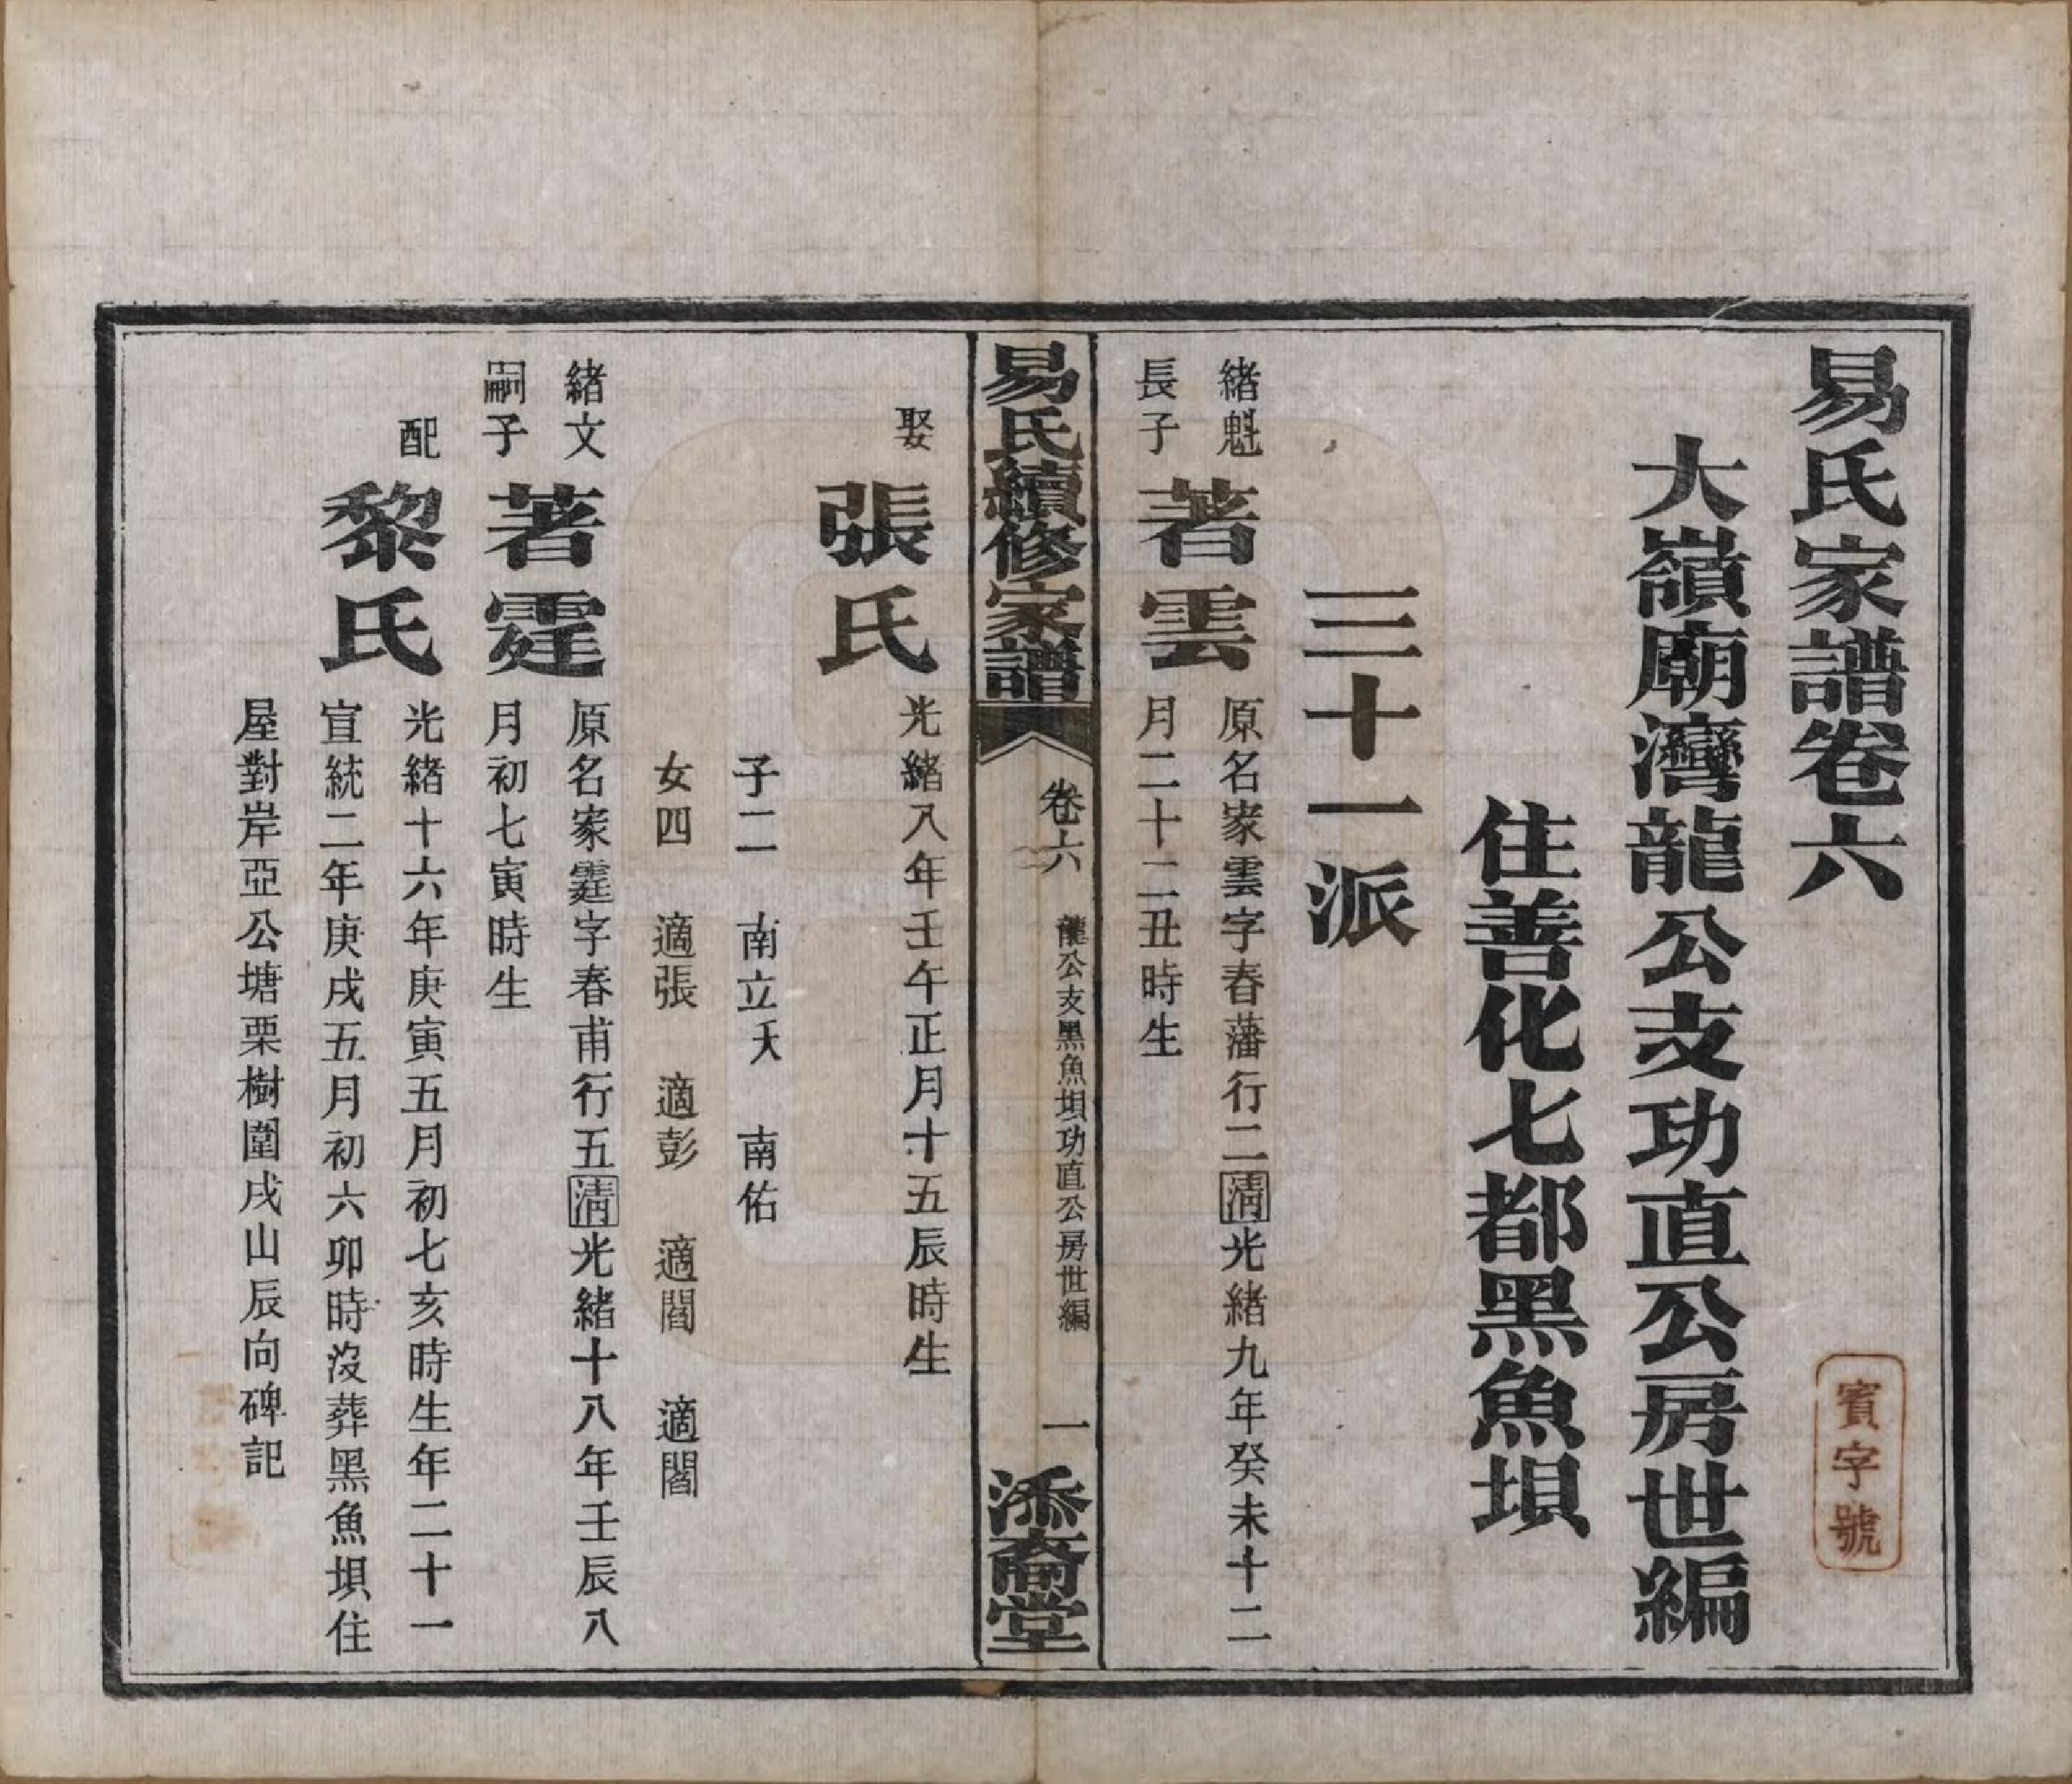 易氏家譜卷六
賓字號
大嶺廟灣龍公支功直公房世編
住善化七都黑魚垻
三十一派
緒魁
長子
著雲
原名家雲字春藩行二清光緒九年癸未十二
月二十二丑時生
易氏續修家譜
卷六
龍公支黑魚垻功直公房世編
一
添裔堂
娶
張氏
光緒八年壬午正月十五辰時生
子二 南立夭 南佑
女四 適張 適彭 適閻 適閻
緒文
嗣子
著霆
原名家霆字春甫行五清光緒十八年壬辰八
月初七寅時生
配
黎氏
光緒十六年庚寅五月初七亥時生年二十一
宣統二年庚戌五月初六卯時沒葬黑魚垻住
屋對岸亞公塘栗樹圍戌山辰向碑記